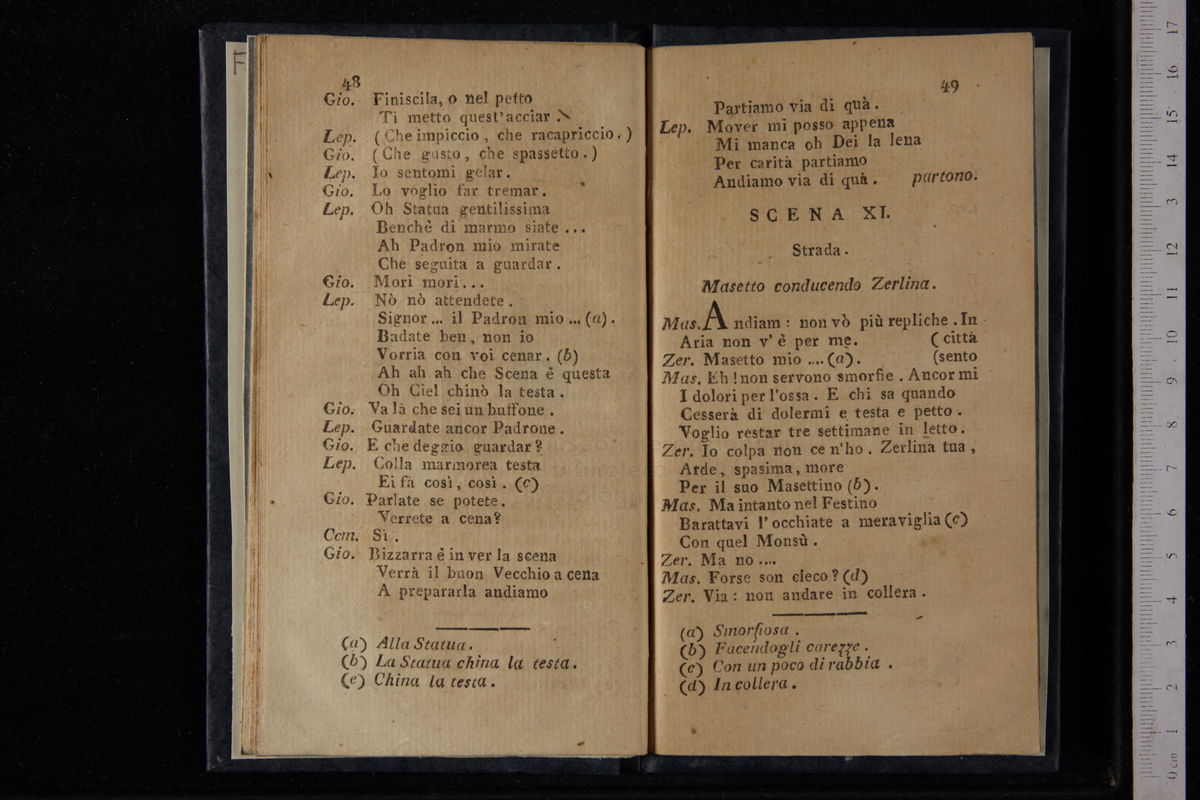 F
48
Gio. Finiscila, o nel petto
Ti metto quest'acciar .
Lep. (Che impiccio, che racapriccio.)
Gio. (Che gusto, che spassetto.)
Lep. Io sentomi gelar.
Gio. Lo voglio far tremar.
Lep. Oh Statua gentilissima
Benchè di marmo siate ...
Ah Padron mio mirate
Che seguita a guardar.
Gio. Mori mori...
Lep. Nò nò attendete.
Signor... il Padron mio... (a).
Badate ben, non io
Vorria con voi cenar. (b)
Ah ah ah che Scena è questa
Oh Ciel chinò la testa.
Gio. Va là che sei un buffone.
Lep. Guardate ancor Padrone.
Gio. E che deggio guardar?
Lep. Colla marmorea testa
Ei fà così, così. (c)
Gio. Parlate se potete.
Verrete a cena?
Com. Sì.
Gio. Bizzarra è in ver la scena
Verrà il buon Vecchio a cena
A prepararla andiamo
(a) Alla Statua.
(b) La Statua china la testa.
(c) China la testa.
49
Partiamo via di quà.
Lep. Mover mi posso appena
Mi manca oh Dei la lena
Per carità partiamo
Andiamo via di quà. partono.
SCENA XI.
Strada.
Masetto conducendo Zerlina.
Mas. Andiam: non vò più repliche. In
Aria non v'è per me. (città
Zer. Masetto mio ....(a). (sento
Mas. Eh! non servono smorfie. Ancor mi
I dolori per l'ossa. E chi sa quando
Cesserà di dolermi e testa e petto.
Voglio restar tre settimane in letto.
Zer. Io colpa non ce n'ho. Zerlina tua,
Arde, spasima, more
Per il suo Masettino (b).
Mas. Ma intanto nel Festino
Barattavi l'occhiate a meraviglia (c)
Con quel Monsù.
Zer. Ma no ....
Mas. Forse son cieco? (d)
Zer. Via: non andare in collera.
(a) Smorfiosa.
(b) Facendogli carezze.
(c) Con un poco di rabbia.
(d) In collera.
0 cm 1 2 3 4 5 6 7 8 9 10 11 12 13 14 15 16 17